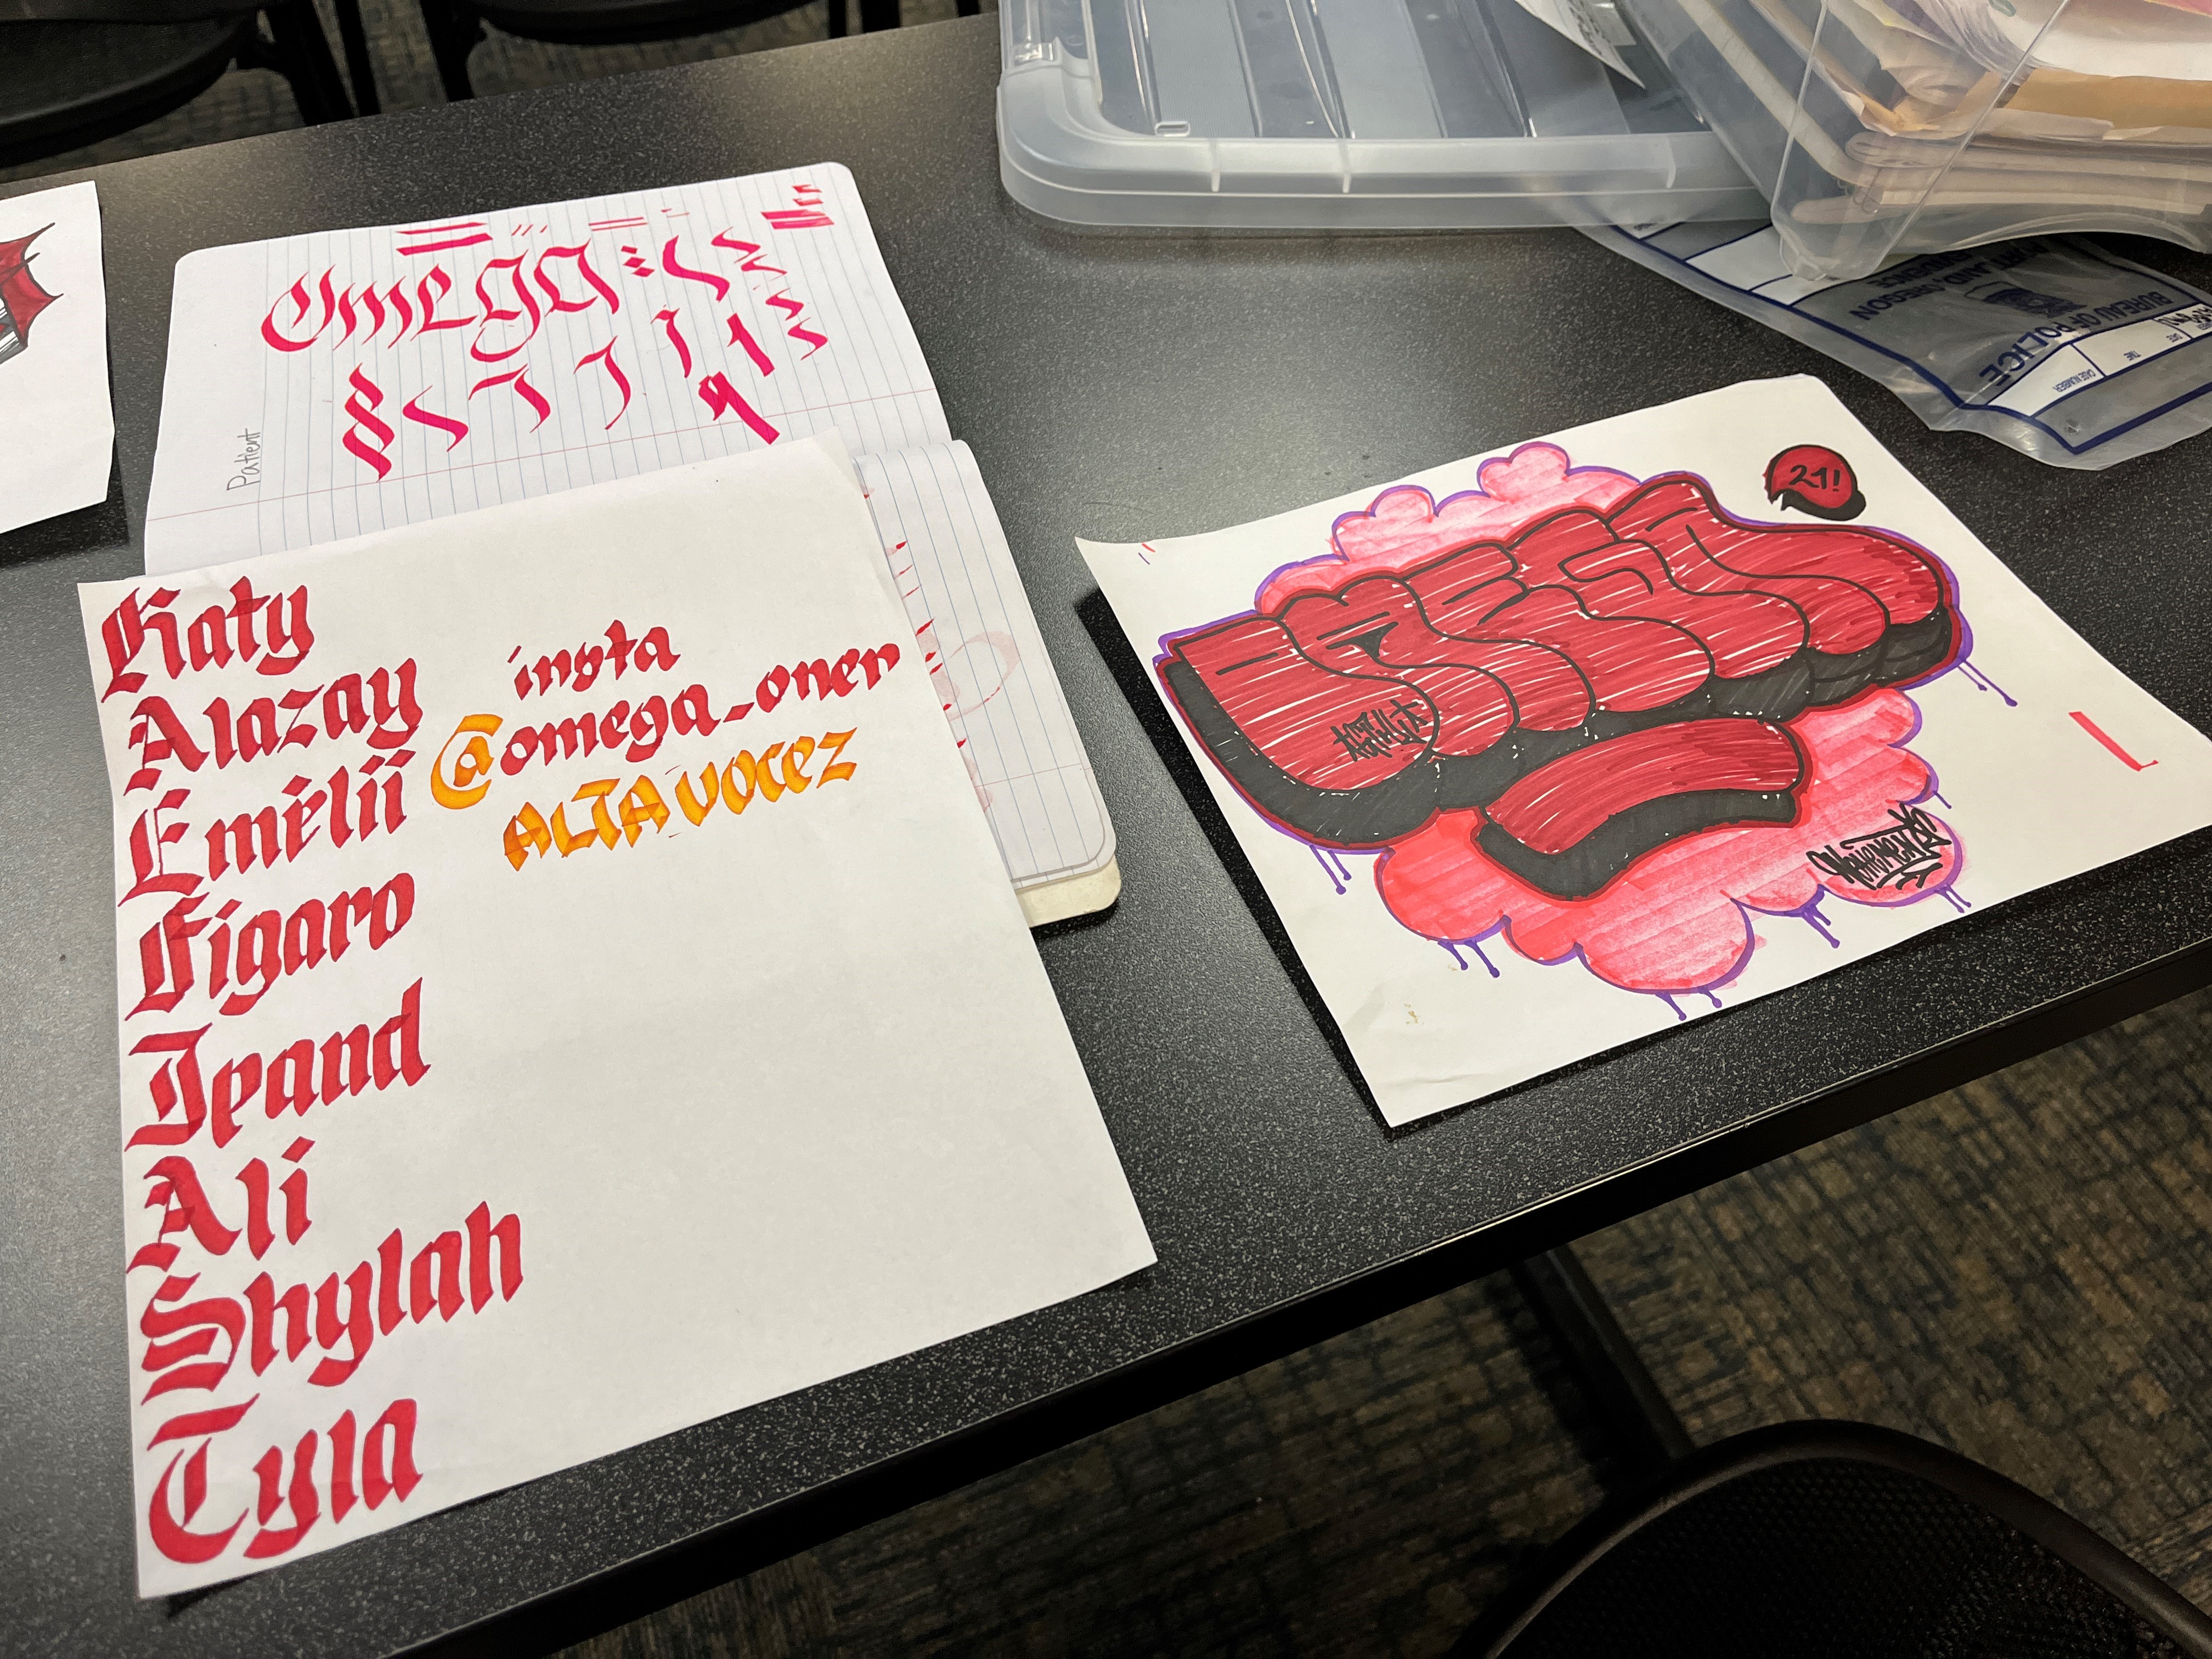 Omega
Patient
Katy
Alazay
Emélii
Figaro
Ipand
Ali
Shylah
Tyla
insta
@omega_oner
ALTAVOCEZ
21!
PORTLAND OREGON
BUREAU OF POLICE
CASE NUMBER
DATE
TIME